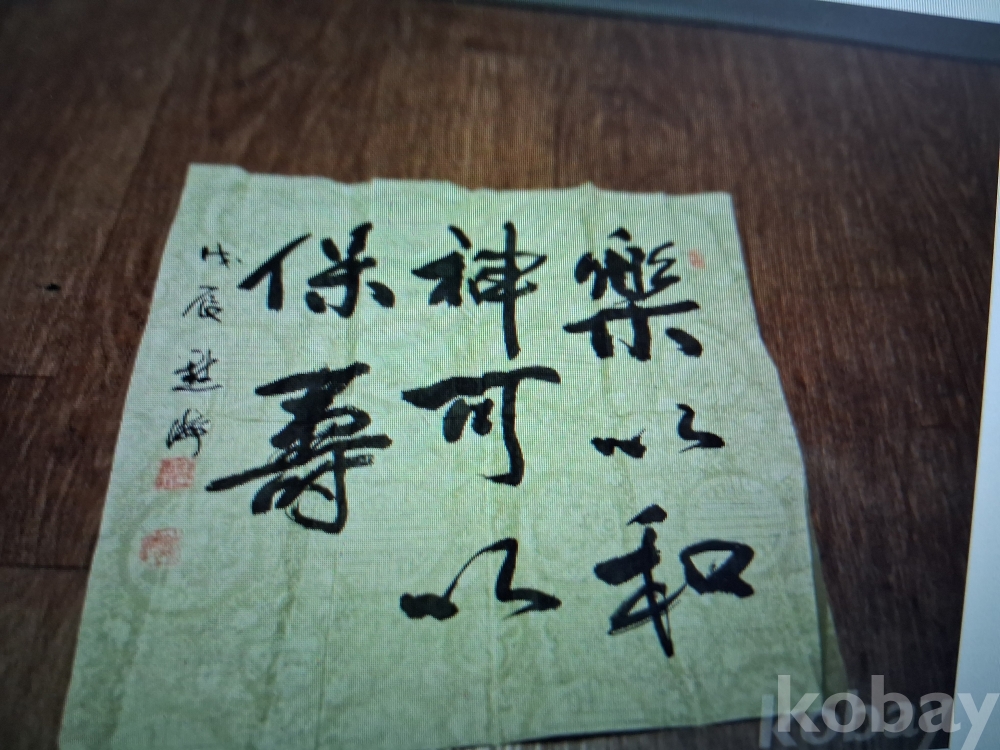 樂以和
神可以
保壽
戊辰
kobay